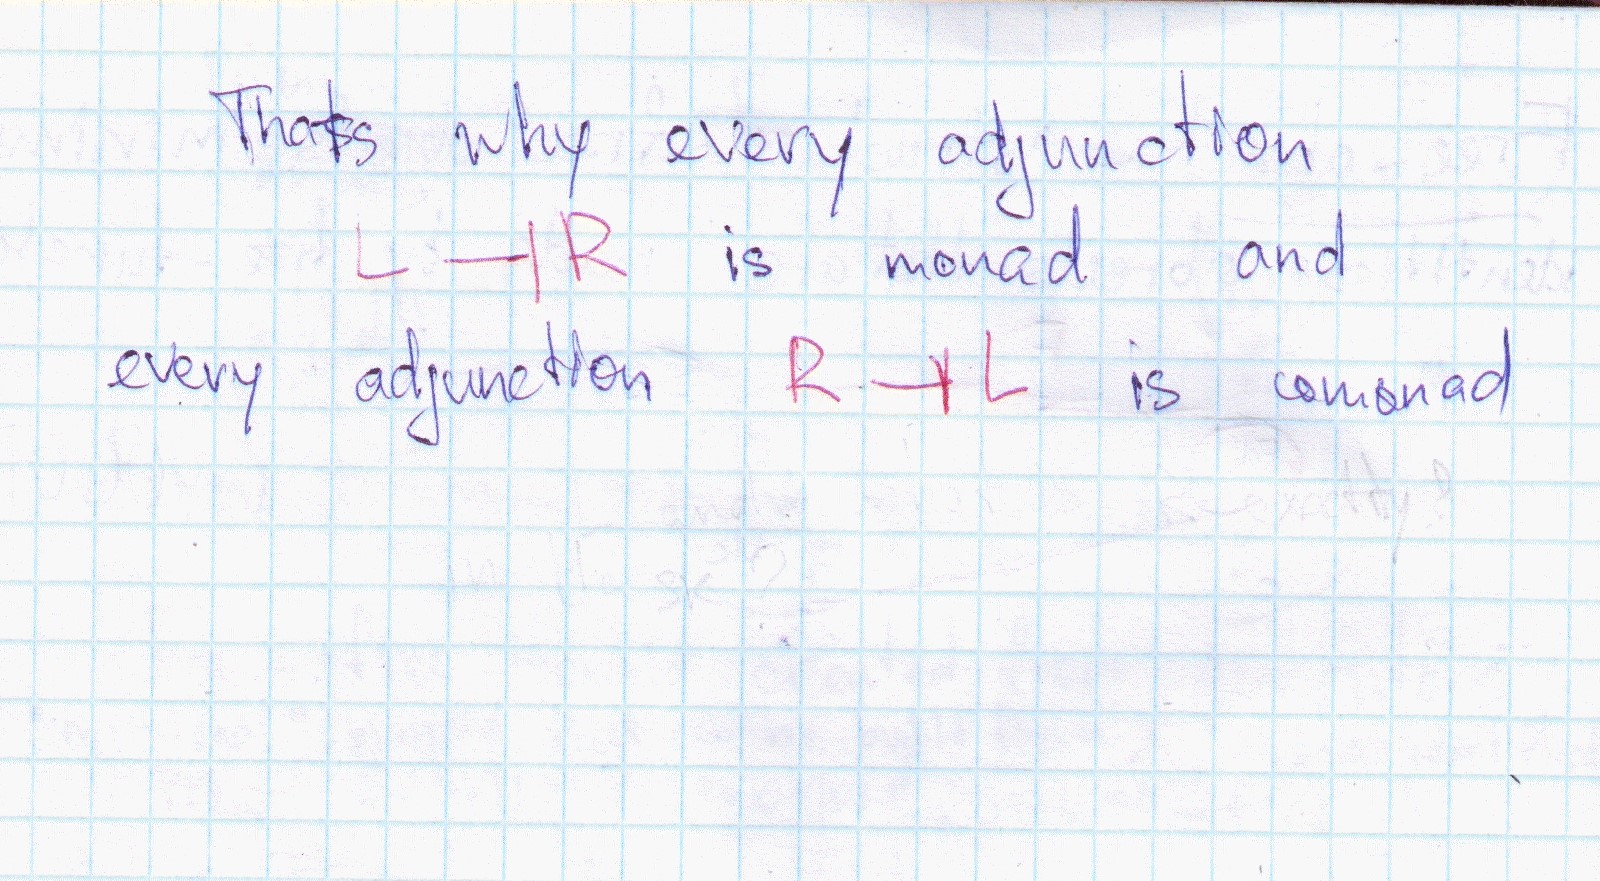 Thats why every adjunction
L ⊣ R is monad and
every adjunction R ⊣ L is comonad